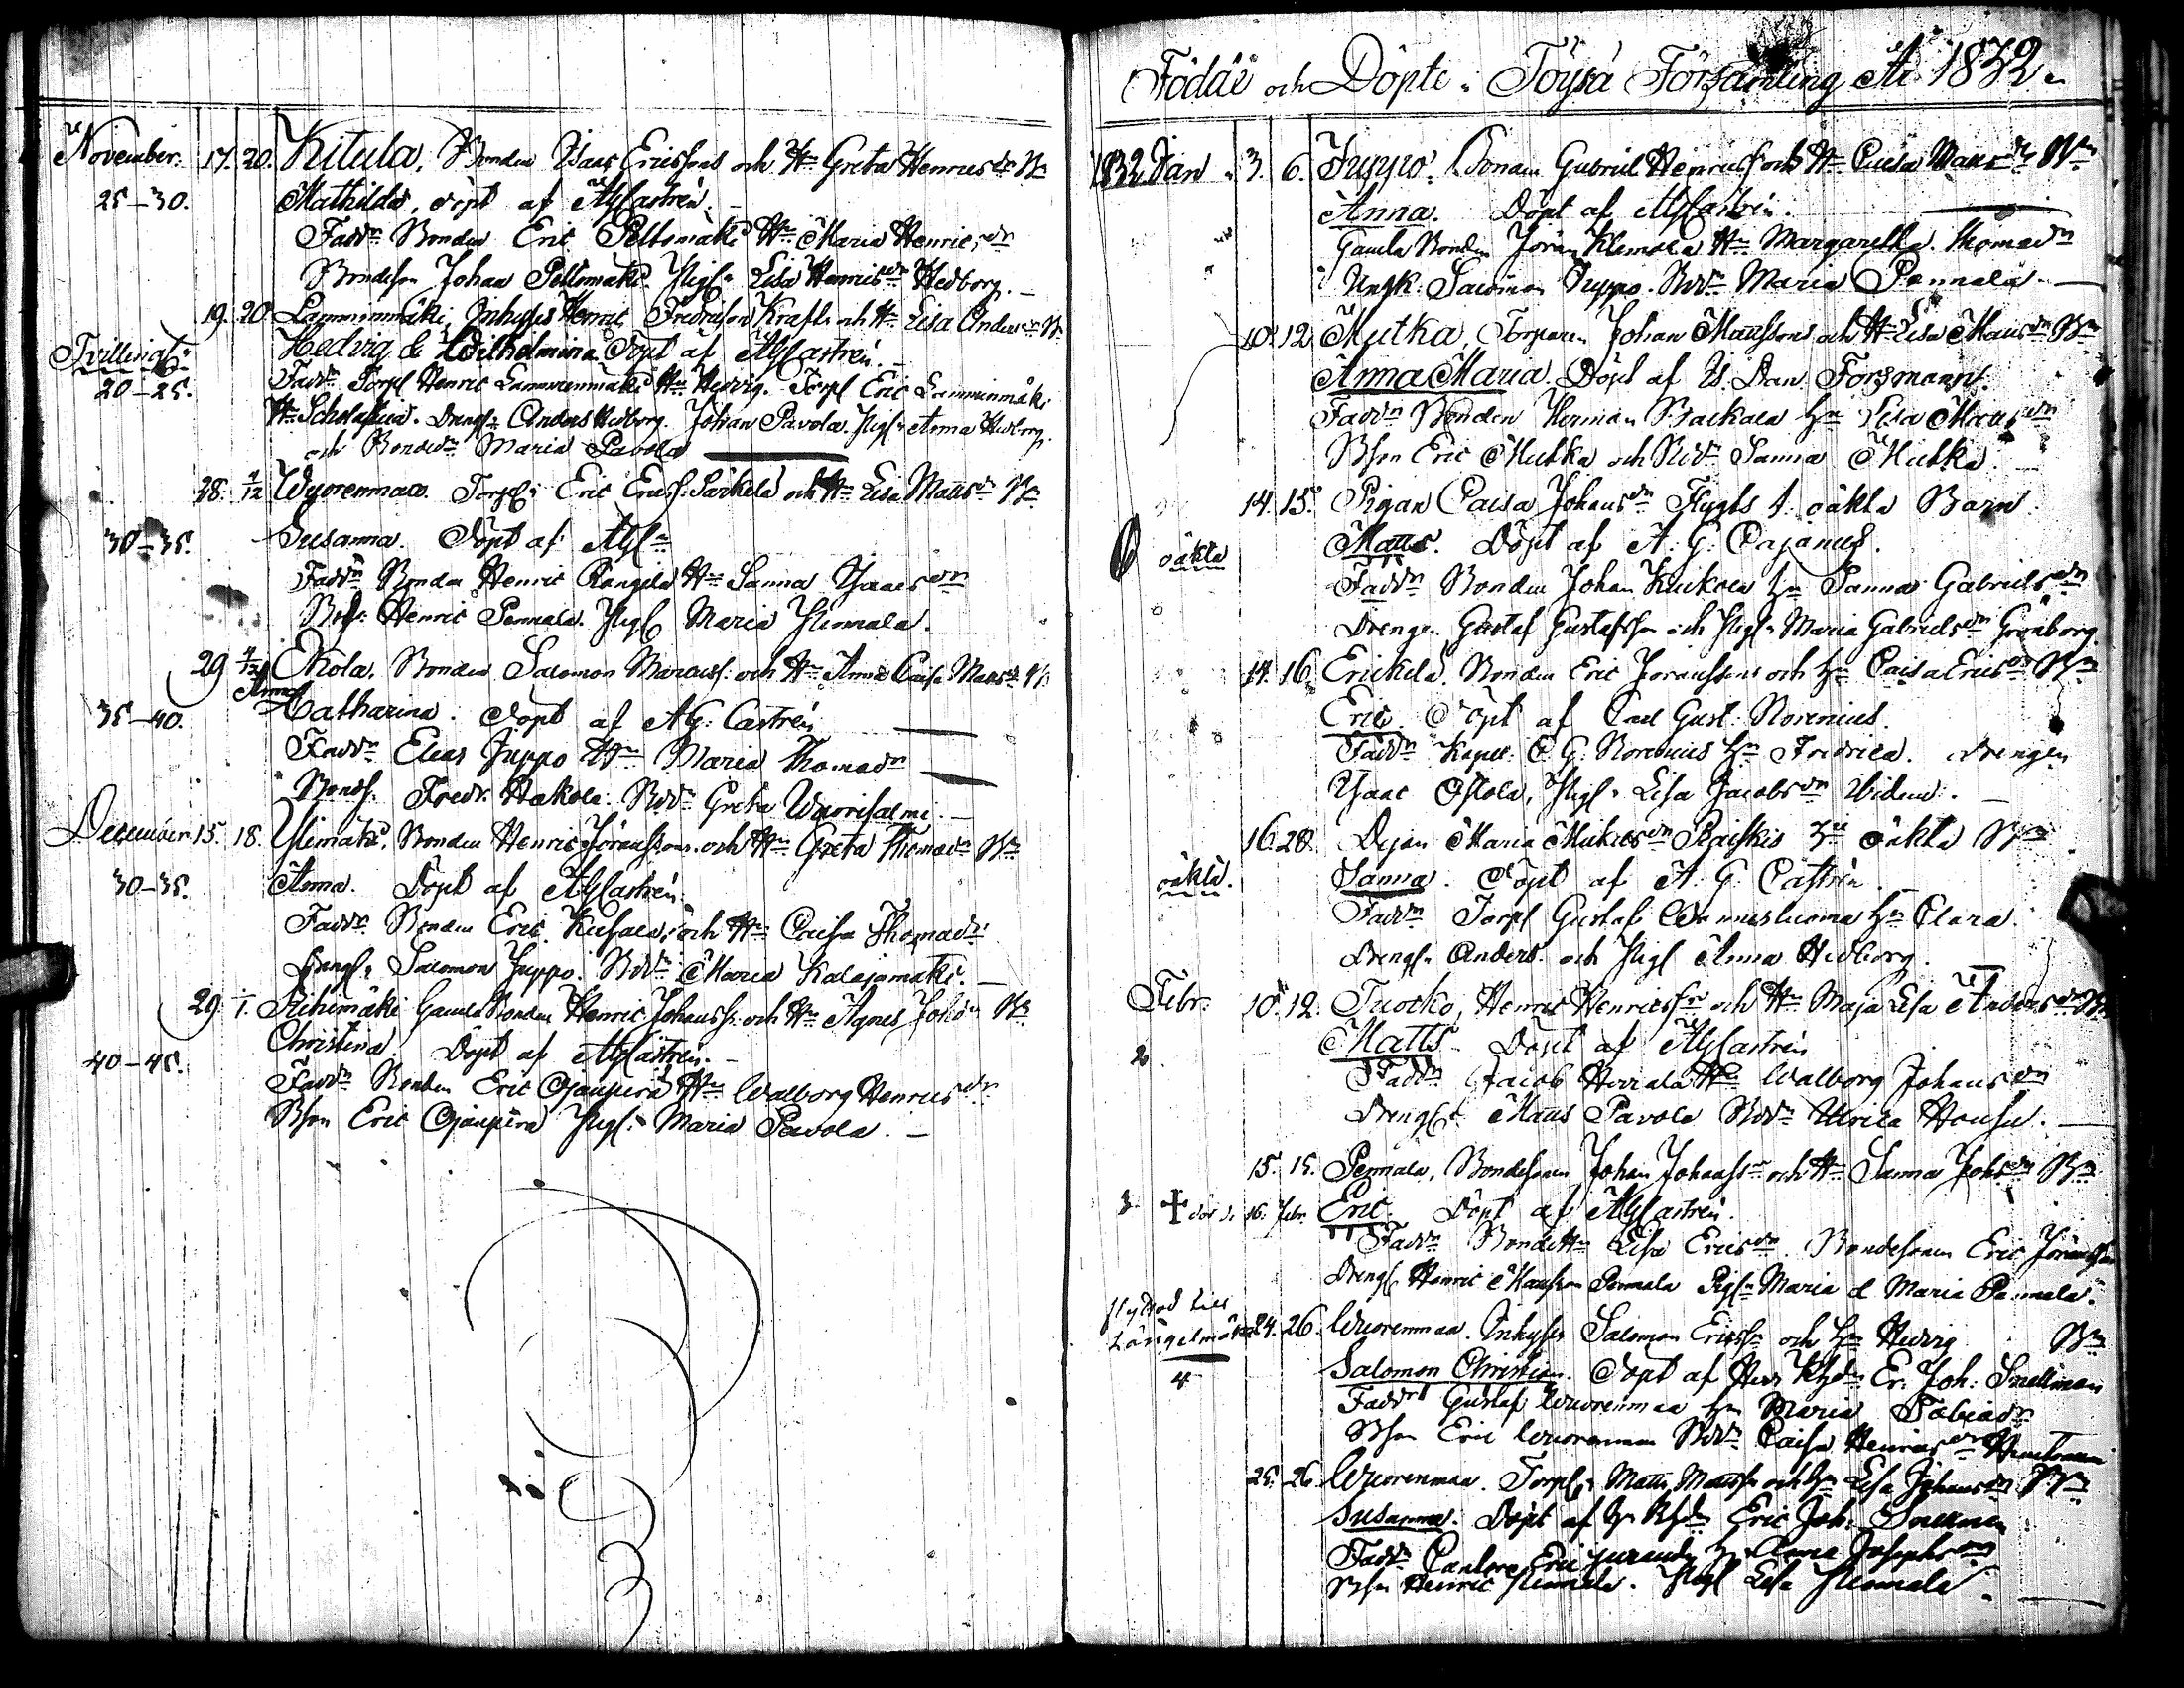 November. 17. 20. Kitula, Bonden Isaac Ericssons och H:n Greta Henricsdr Bn
25–30. Mathilda, döpt af AGCastrén.
Fadd:n Bonden Eric Peltomäki H:n Maria Henricsdn
Bondeson Johan Peltomäki. Pigl: Lisa Henricsdn Hedborg.
19. 20. Lamminmäki, Inhyses Henric Fredricson Kraft och H:n Lisa Andersdn Bn
Tvillingar. Hedvig & Wilhelmina döpt af AGCastrén.
20–25. Fadd:n Torpl Henric Lamminmäki H:n Hedvig. Torpl Eric Lamminmäki
H:n Scholastica. Drengl: Anders Hedborg. Johan Pavola. Pigl:n Anna Hedborg.
och Bondedn Maria Pavola
28. 1/12 Wuorenmaa. Torpl: Eric Ericss: Särkelä och H:n Lisa Mattsdn Bn
30–35. Susanna. Döpt af AGC:n
Fadd:n Bonden Henric Rangila H:n Sanna Isaacsdn
Bdsn: Henric Pennala. Pigl Maria Niemala.
29 4/12 Okola, Bonden Salomon Marcuss: och H:n Anna Caisa Mattsdn
Anna
35–40. Catharina. Döpt af AG: Castrén
Fadd:n Elias Juppo H:n Maria Thomadn
Bonds. Fredr. Hakola. Bdn Greta Wuorisalmi.
December 15. 18. Ylimäki, Bonden Henric Jöranssons och H:n Greta Thomadn Bn
30–35. Anna. Döpt af AGCastrén.
Fadd:n Bonden Eric och H:n Caisa Thomadn
Drengl: Salomon Juppo. Bdn Maria Kalajamäki.
29 1/1. Riihimäki Gamla Bonden Henric Johanss: och H:n Agnes Johdn Bn
Christina. Döpt af AGCastrén.
40–45. Fadd:n Bonden Eric Ojanperä H:n Walborg Henricsdn
Bson Eric Ojanperä Pigl: Maria Pavola.
Födde och Döpte i Töysä Församling År 1832.
1832 Jan. 3. 6. Juppo. Bonden Gabriel Henricss: och H:n Caisa Mattsdn Bn
Anna. Döpt af AGCastrén.
Gamla Bonden Jöran Klemola H:n Margaretha Thomadn
Ungk: Salomon Juppo. Bdn Maria Pennala.
10. 12. Mutka, Torparen Johan Mattssons och H:n Lisa Mattsdn Bn
Anna Maria. Döpt af Is. Dan. Forsmann.
Fadd:n Bonden Herman H:n Lisa Mattsdn
Bson Eric Mutka och Bdn Sanna Mutka.
14. 15. Pigan Caisa Johansdn Flygts 1. oäkta Barn
oäkta Matts. Döpt af A: G: Cajanus.
Fadd:n Bonden Johan H:n Sanna Gabrielsdn
Drengen Gustaf Gustafsson och Pigl:n Maria Gabrielsdn Grönborg.
14. 16. Erickilä. Bonden Eric Joranssons och H:n Caisa Ericsdn Bn
Eric. Döpt af Carl Gust: Norenius.
Fadd:n Kapell: C G: Norenius H:n Fredrica. Drengen
Isaac Ostola, Pigl: Lisa Jacobsdn ibidem.
16. 28. Pigan Maria Mickelsdn 3:e oäkta Bn
oäkta. Sanna. Döpt af A: G: Castrén.
Fadd:n Torpl Gustaf H:n Clara.
Drengl: Anders och Pigl Anna Hedborg.
Febr. 10. 12. Tuorko, Henric Henricsson och H:n Maja Lisa Andersdn Bn
2 Matts. Döpt af AGCastrén
Fadd:n Jacob Herrala H:n Walborg Johansdn
Drengl: Matts Pavola Bdn Ulrica
15. 15. Pennala, Bondesonen Johan Johanss:n och H:n Sanna Johsdn Bn
3 † död d. 16. Febr. Eric. Döpt af AGCastrén.
Fadd:n BondeH:n Lisa Ericsdn. Bondesonen Eric Jöransson
Drengl Henric Mattsson Pennala Pigl:n Maria & Maria Pennala.
flyttad till Längelmäki 24. 26. Wuorenmaa. Inhyses Salomon Ericss:n och H:n Hedvig Bn
4 Salomon Christian. Döpt af Herr Er: Joh: Snellman
Fadd:n Gustaf Wuorenmaa H:n Maria Tobiasdn
Bson Eric Wuorenmaa Bdn Caisa Henricsdn
25. 26. Wuorenmaa. Torpl: Matts Mattss:n och H:n Lisa Johansdn Bn
Susanna. Döpt af H:r Eric Joh: Snellman
Fadd:n Cantorn Eric H:n Anna Josephsdn
Bson Henric Niemala. Pigl Lisa Niemala